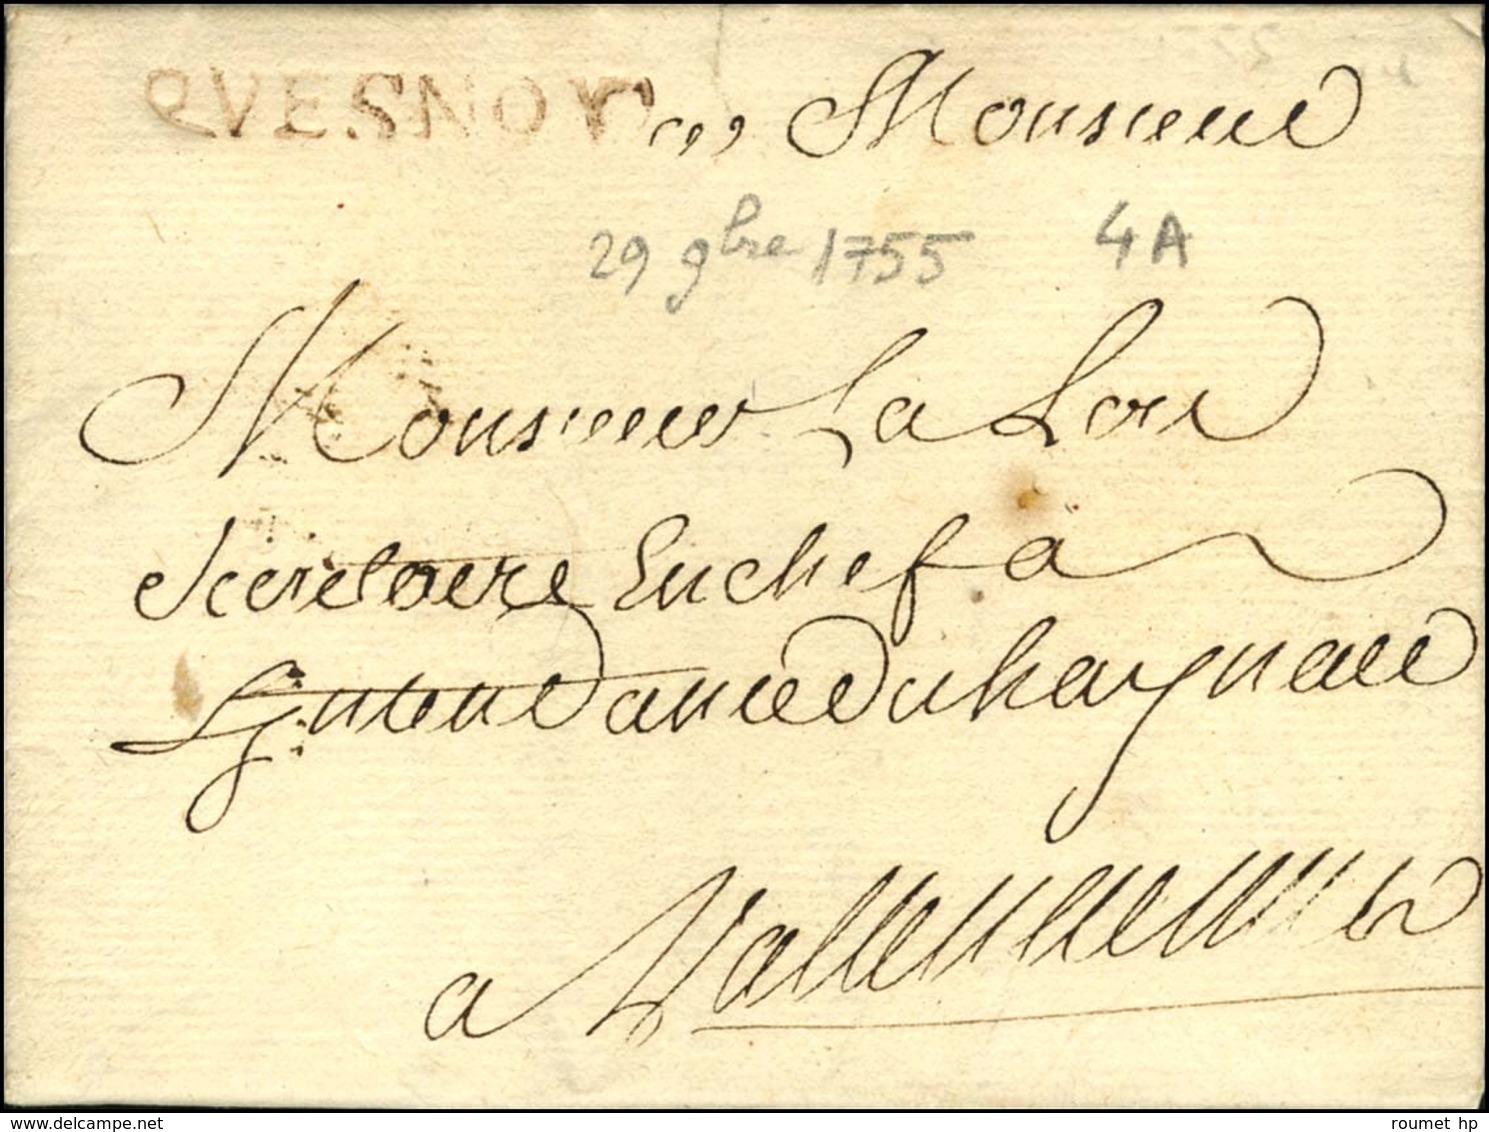 QVESNOY Monsieur
29 9bre 1755 4A
Monsieur La Loi
Secretaire Enchef a
Lintendance du haynau
a Vallenciennes
delcampe.net
roumet hp